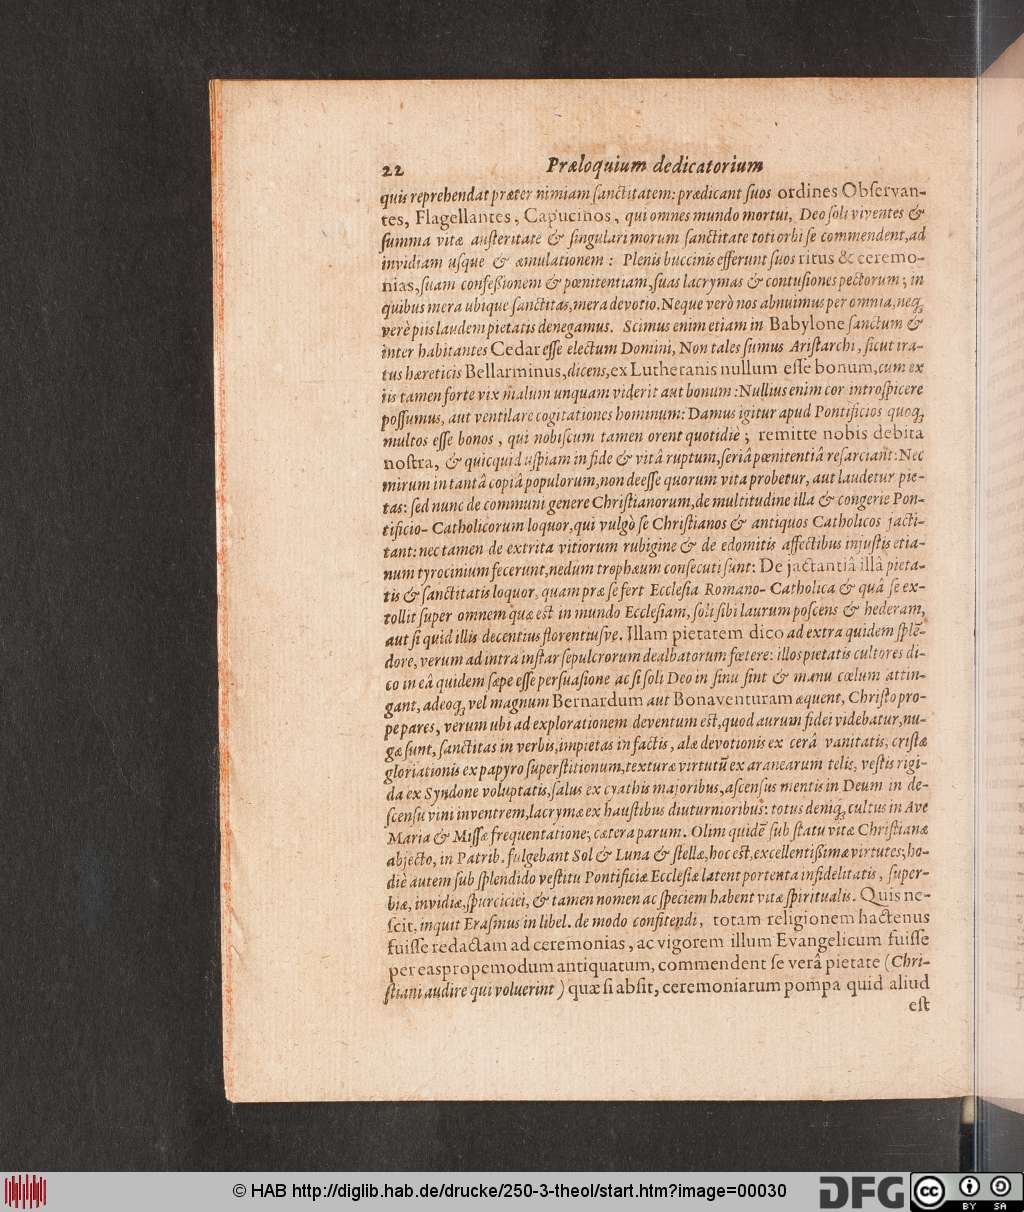 22 Præloquium dedicatorium
quis reprehendat præter nimiam ſanctitatem: prædicant ſuos ordines Obſervan-
tes, Flagellantes, Capucinos, qui omnes mundo mortui, Deo ſoli viventes &
ſumma vitæ auſteritate & ſingulari morum ſanctitate toti orbi ſe commendent, ad
invidiam uſque & æmulationem: Plenis buccinis efferunt ſuos ritus & ceremo-
nias, ſuam confeßionem & pœnitentiam, ſuas lacrymas & contuſiones pectorum; in
quibus mera ubique ſanctitas, mera devotio. Neque verò nos abnuimus per omnia, neq́;
verè piis laudem pietatis denegamus. Scimus enim etiam in Babylone ſanctum &
inter habitantes Cedar eſſe electum Domini, Non tales ſumus Ariſtarchi, ſicut ira-
tus hæreticis Bellarminus, dicens, ex Lutheranis nullum eſſe bonum, cum ex
iis tamen forte vix malum unquam viderit aut bonum: Nullius enim cor introſpicere
poſſumus, aut ventilare cogitationes hominum: Damus igitur apud Pontificios quoq́;
multos eſſe bonos, qui nobiſcum tamen orent quotidiè; remitte nobis debita
noſtra, & quicquid uſpiam in fide & vitâ ruptum, ſeriâ pœnitentiâ reſarciant: Nec
mirum in tantâ copiâ populorum, non deeſſe quorum vita probetur, aut laudetur pie-
tas: ſed nunc de communi genere Chriſtianorum, de multitudine illa & congerie Pon-
tificio-Catholicorum loquor, qui vulgò ſe Chriſtianos & antiquos Catholicos jacti-
tant: nec tamen de extrita vitiorum rubigine & de edomitis affectibus injuſtis etia-
num tyrocinium fecerunt, nedum trophæum conſecuti ſunt: De jactantiâ illâ pieta-
tis & ſanctitatis loquor, quam præ ſe fert Eccleſia Romano-Catholica & quâ ſe ex-
tollit ſuper omnem quæ est in mundo Eccleſiam, ſoli ſibi laurum poſcens & hederam,
aut ſi quid illis decentius florentiuſve. Illam pietatem dico ad extra quidem ſplē-
dore, verum ad intra inſtar ſepulcrorum dealbatorum fœtere: illos pietatis cultores di-
co in eâ quidem ſæpe eſſe perſuaſione ac ſi ſoli Deo in ſinu ſint & manu cœlum attin-
gant, adeoq́; vel magnum Bernardum aut Bonaventuram æquent, Chriſto pro-
pe pares, verum ubi ad explorationem deventum est, quod aurum fidei videbatur, nu-
gæ ſunt, ſanctitas in verbis, impietas in factis, alæ devotionis ex cerâ vanitatis, criſtæ
gloriationis ex papyro ſuperſtitionum, texturæ virtutū ex aranearum telis, veſtis rigi-
da ex Syndone voluptatis, ſalus ex cyathis majoribus, aſcenſus mentis in Deum in de-
ſcenſu vini inventrem, lacrymæ ex hauſtibus diuturnioribus: totus deniq́; cultus in Ave
Maria & Miſſæ frequentatione; cætera parum. Olim quidē ſub ſtatu vitæ Chriſtianæ
abjecto, in Patrib. fulgebant Sol & Luna & ſtellæ, hoc est, excellentißimæ virtutes; ho-
diè autem ſub ſplendido veſtitu Pontificiæ Eccleſiæ latent portenta infidelitatis, ſuper-
biæ, invidiæ, ſpurciciei, & tamen nomen ac ſpeciem habent vitæ ſpiritualis. Quis ne-
ſcit, inquit Eraſinus in libel. de modo confitendi, totam religionem hactenus
fuiſſe redactam ad ceremonias, ac vigorem illum Evangelicum fuiſſe
per eas propemodum antiquatum, commendent ſe verâ pietate (Chri-
ſtiani audire qui voluerint) quæ ſi abſit, ceremoniarum pompa quid aliud
eſt
© HAB http://diglib.hab.de/drucke/250-3-theol/start.htm?image=00030
DFG
cc BY SA